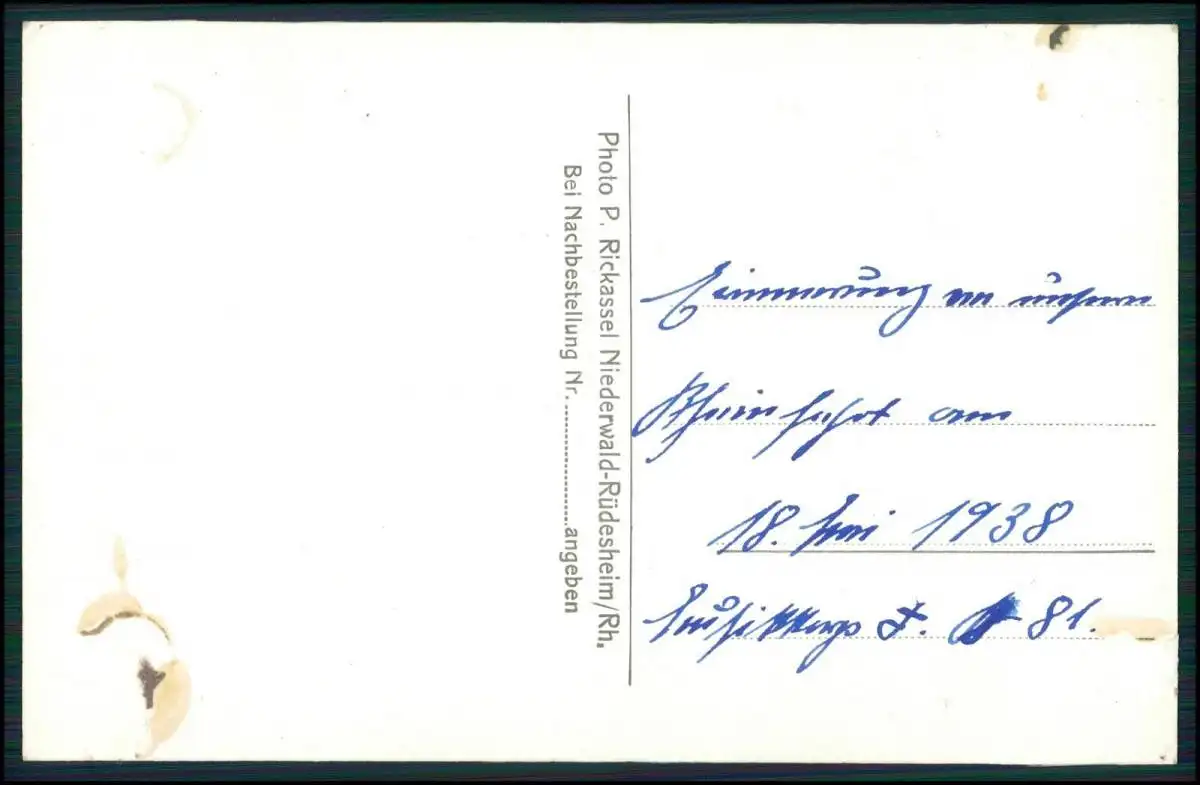 Photo P. Rickassel Niederwald-Rüdesheim/Rh.
Bei Nachbestellung Nr. ............ angeben
Erinnerung an unsere
Rheinfahrt am
18. Mai 1938
Musikkorps J. 81.